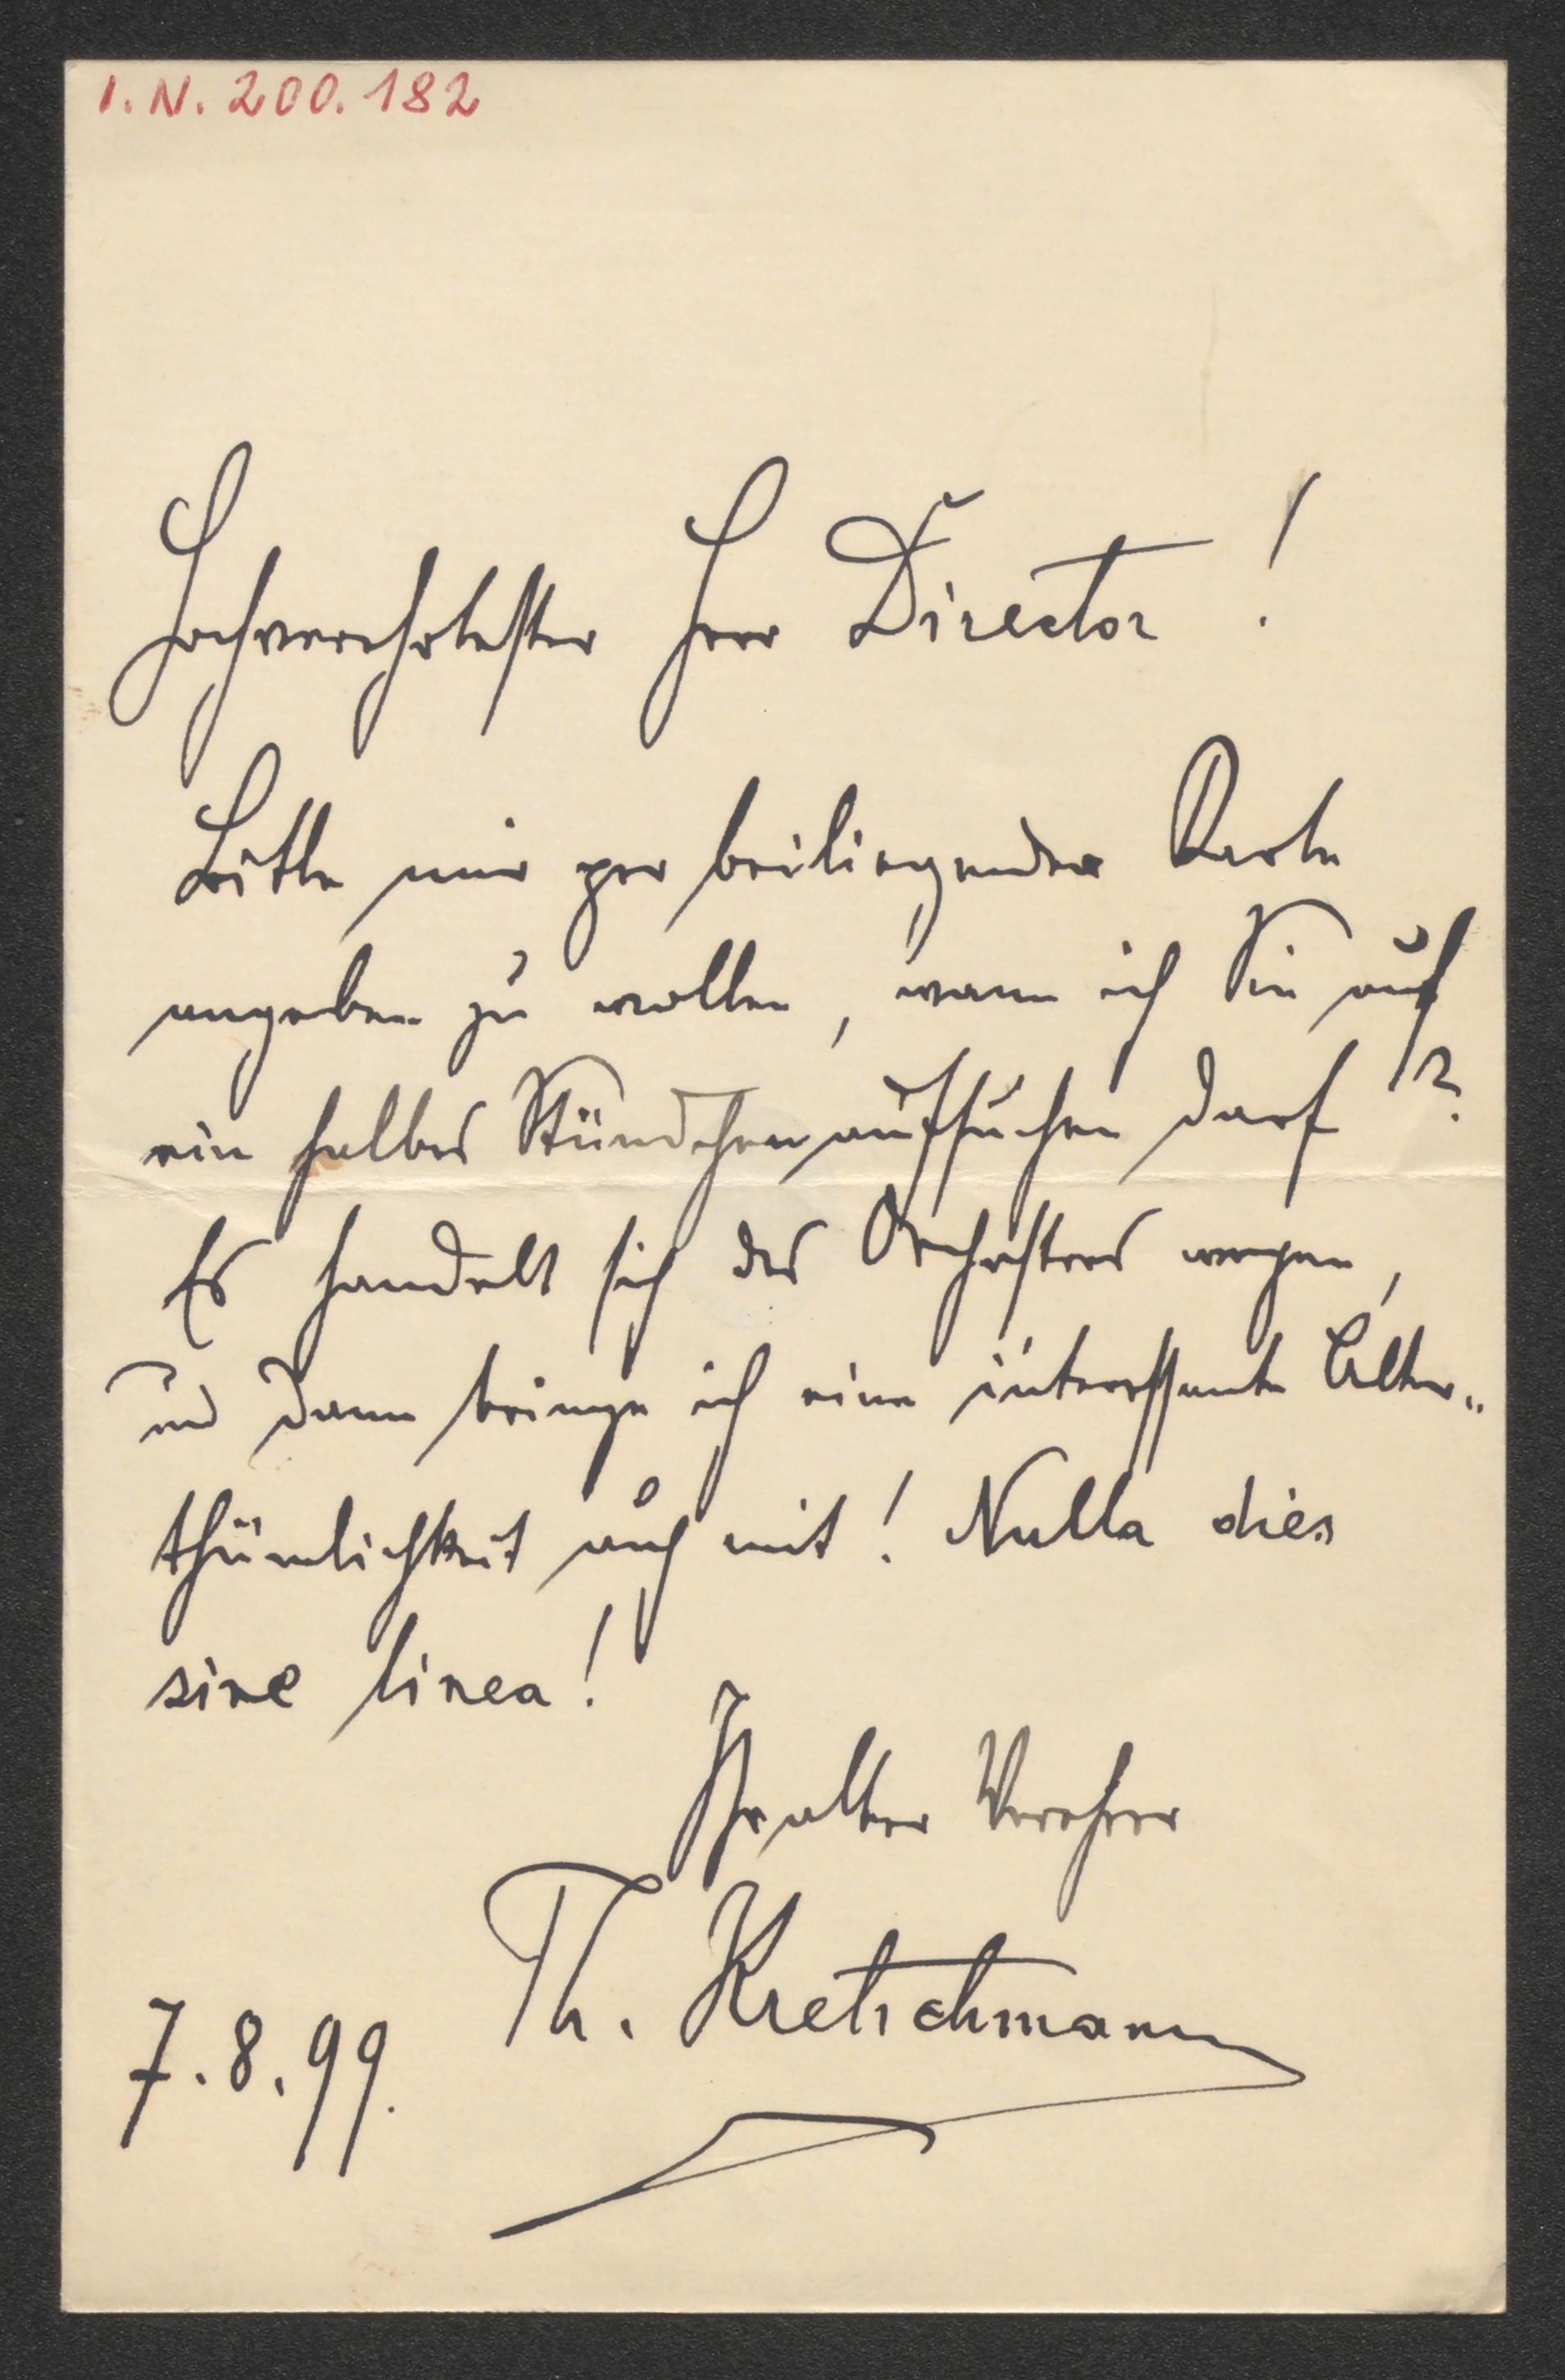 I. N. 200.182
Hochverehrtester Herr Director !
Bitte mir per beiliegender Karte
angeben zu wollen, wann ich Sie auf
ein halbes Stündchen aufsuchen darf ?
Es handelt sich des Orchesters wegen,
und dann bringe ich eine interessante Alter„
thümlichkeit auch mit ! Nulla dies
sine linea !
Ihr alter Verehrer
Th. Kretschmann
7. 8. 99.